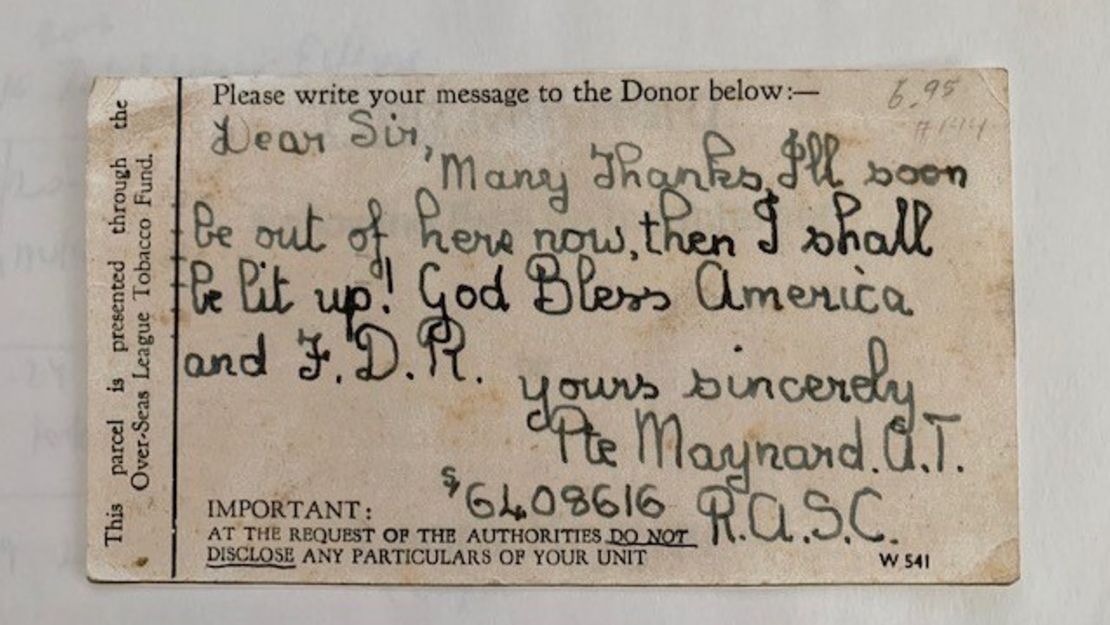 Please write your message to the Donor below:—
6.95
#144
Dear Sir,
Many Thanks, I'll soon
be out of here now, then I shall
be lit up! God Bless America
and F.D.R.
yours sincerely
Pte Maynard. A.T.
S/6408616 R.A.S.C.
IMPORTANT:
AT THE REQUEST OF THE AUTHORITIES DO NOT
DISCLOSE ANY PARTICULARS OF YOUR UNIT
W 541
This parcel is presented through the
Over-Seas League Tobacco Fund.